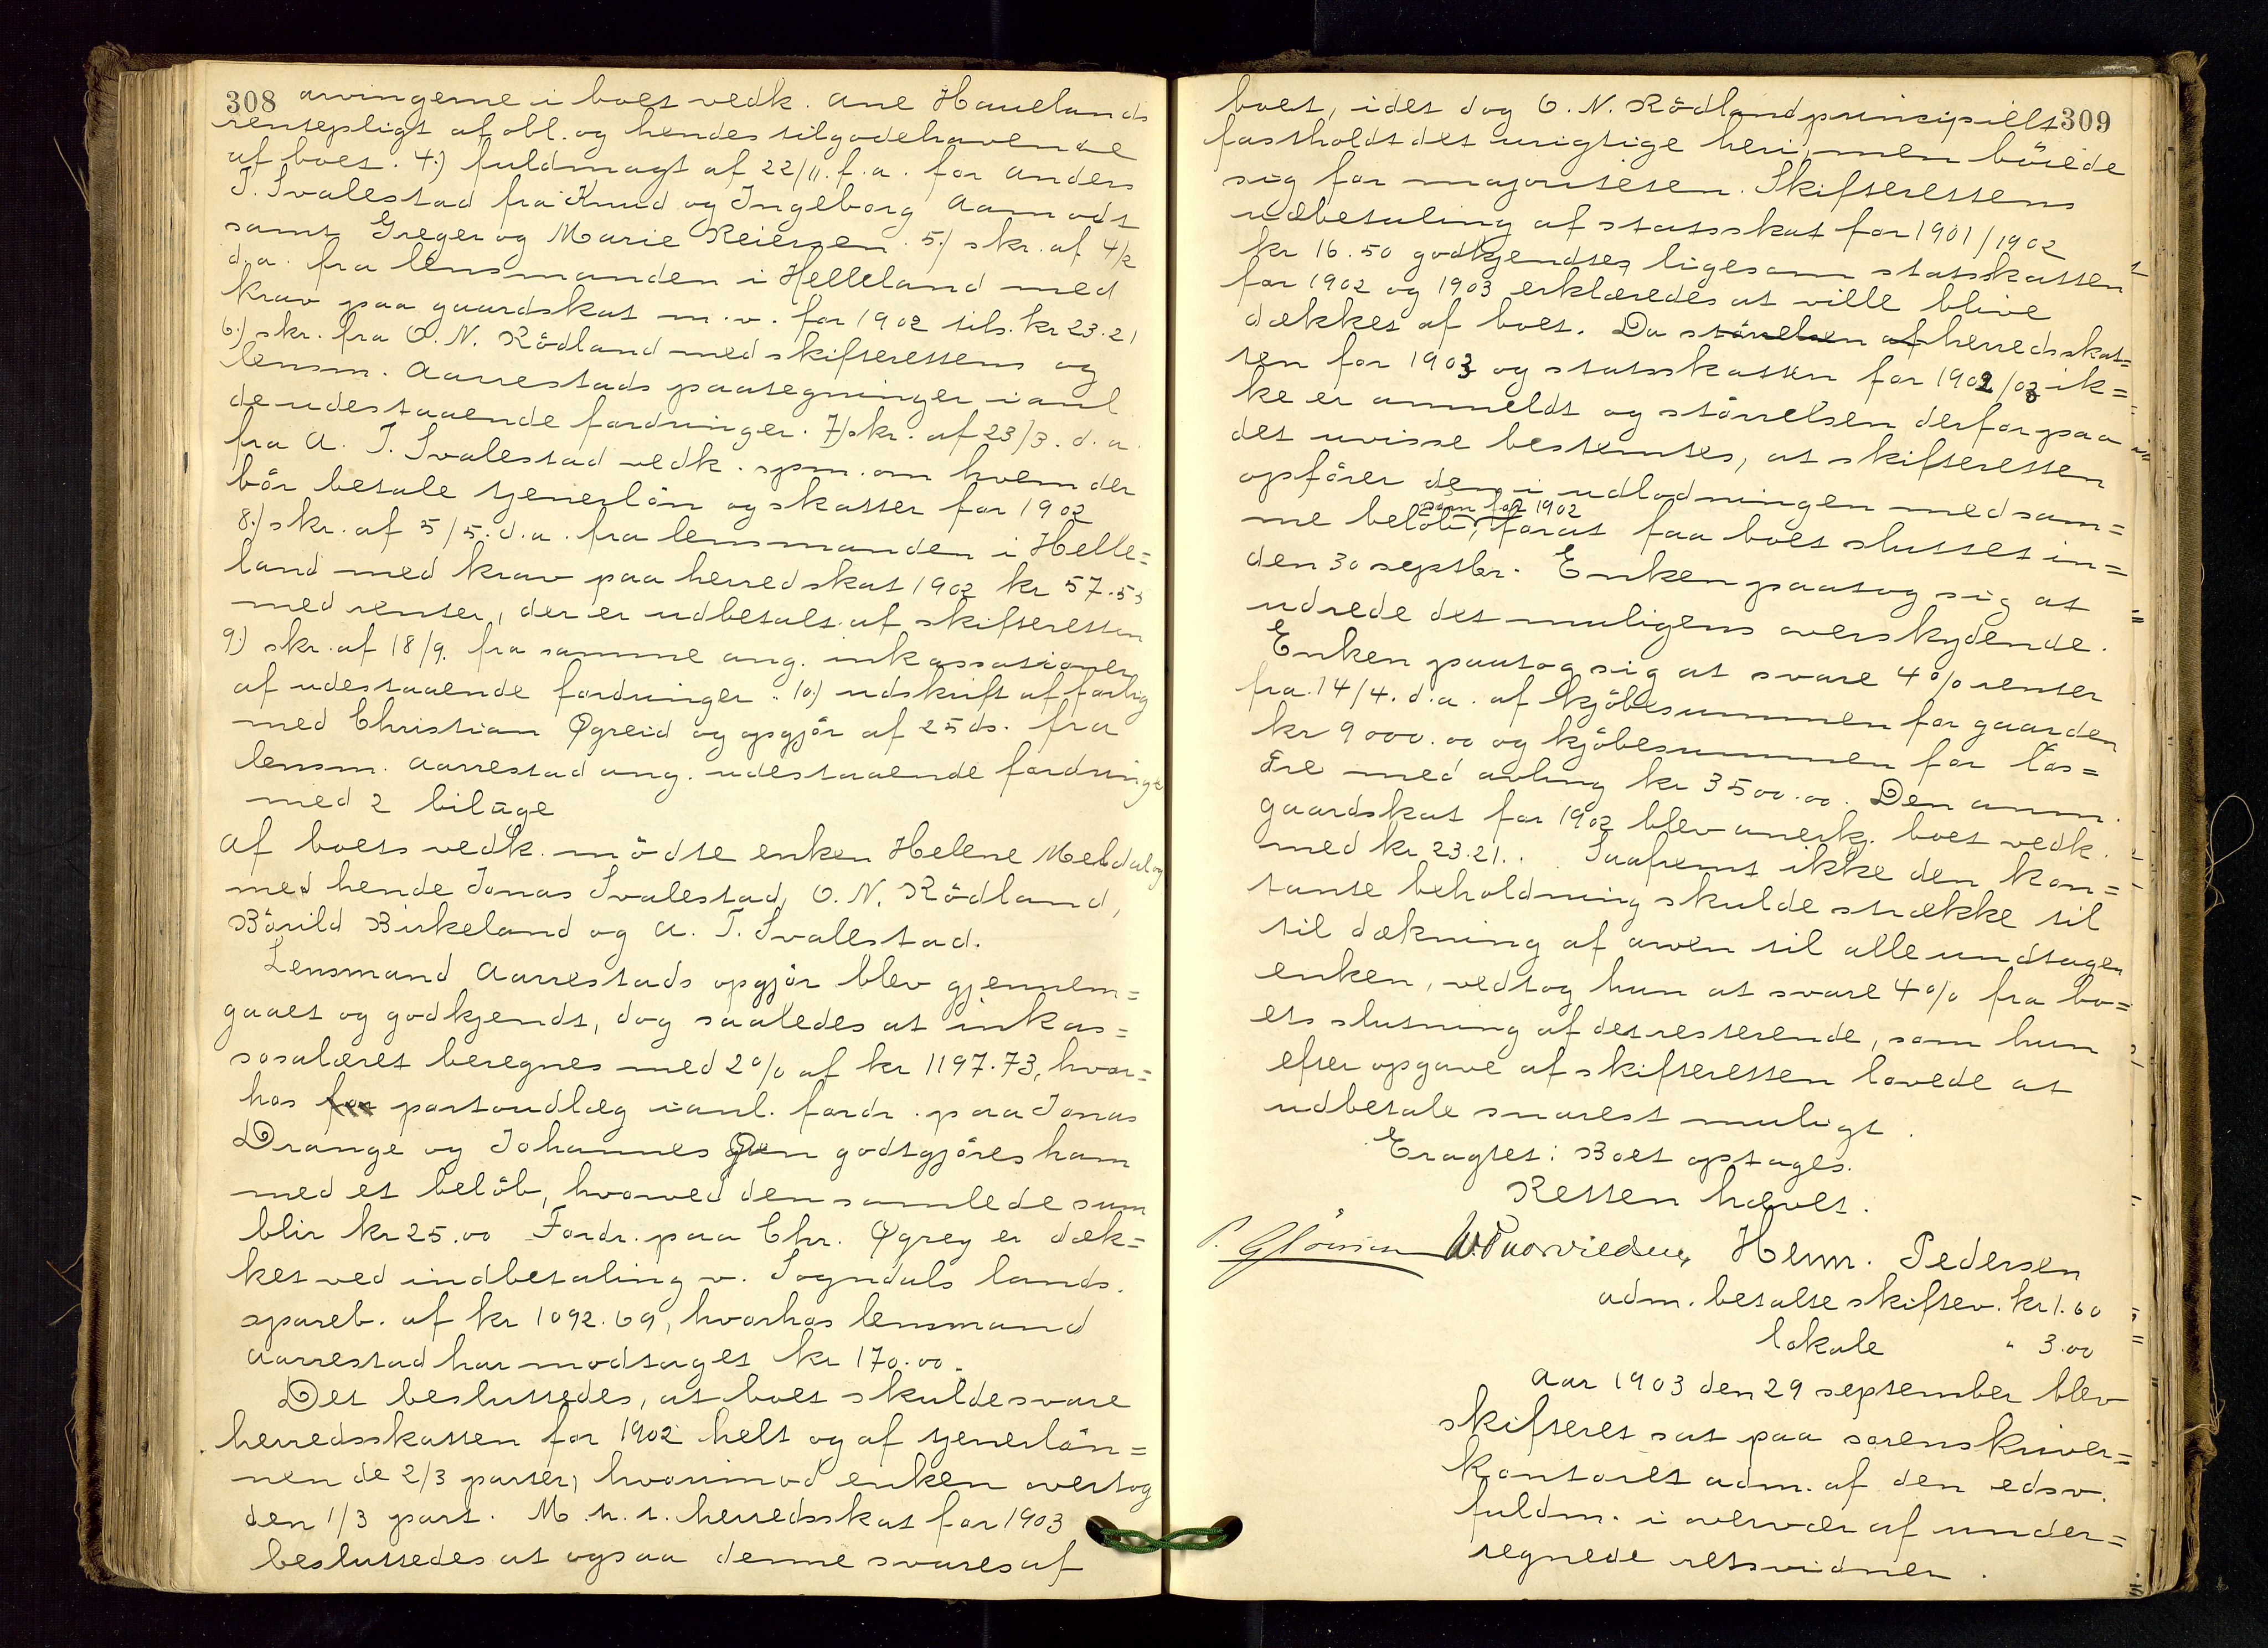 308 arvingerne i boet vedk. Ane Hauelands
rentepligt af obl. og hendes tilgodehavende
af boet. 4.) fuldmagt af 22/11. f.a. for Anders
T. Svalestad fra Knud og Ingeborg Aamodt
samt Greger og Marie Reiersen. 5.) skr. af 4/2
d.a. fra lensmanden i Helleland med
krav paa gaardskat m.v. for 1902 tils. kr 23.21
6.) skr. fra O. N. Rödland med skifterettens og
lensm. Aarrestads paategninger i anl.
de udestaaende fordringer. 7.) skr. af 23/3. d.a.
fra A. T. Svalestad vedk. spm. om hvem der
bör betale tjenerlön og skatter for 1902
8.) skr. af 5/5. d.a. fra lensmanden i Helle=
land med krav paa herredskat 1902 kr 57.55
med renter, der er udbetalt af skifteretten
9.) skr. af 18/9. fra samme ang. inkassationen
af udestaaende fordringer. 10.) udskrift af forlig
med Christian Øgreid og opgjör af 25 ds. fra
lensm. Aarrestad ang. udestaaende fordringer
med 2 bilage
Af boets vedk. mödte enken Helene Meldal og
med hende Jonas Svalestad, O. N. Rödland,
Bårild Birkeland og A. T. Svalestad.
Lensmand Aarrestads opgjör blev gjennem=
gaaet og godkjendt, dog saaledes at inkas=
sosalæret beregnes med 2% af kr 1197.73, hvor=
hos for portoudlæg i anl. fordr. paa Jonas
Drange og Johannes godtgjöres ham
med et belöb, hvorved den samlede sum
blir kr 25.00 Fordr. paa Chr. Øgrey er dæk=
ket ved indbetaling v. Sogndals lands.
spareb. af kr 1092.69, hvorhos lensmand
Aarrestad har modtaget kr 170.00.
Det besluttedes, at boet skulde svare
herredsskatten for 1902 helt og af tjenerlön=
nen de 2/3 parter, hvorimod enken overtog
den 1/3 part. M.h.t. herredsskat for 1903
besluttedes at ogsaa denne svares af
boet, idet dog O. N. Rödland principielt 309
fastholdt det urigtige heri, men böiede
sig for majoriteten. Skifterettens
udbetaling af statsskat for 1901/1902
kr 16.50 godkjendtes, ligesom statsskatten
for 1902 og 1903 erklæredes at ville blive
dækket af boet. Da störrelsen af herredsskat=
ten for 1903 og statsskatten for 1902/03 ik=
ke er anmeldt og störrelsen derfor paa
det uvisse bestemtes, at skifteretten
opförer dem i udlodningen med sam=
som for 1902
me belöb, forat faa boet sluttet in=
den 30 septbr. Enken paatog sig at
udrede det muligens overskydende.
Enken paatog sig at svare 4% renter
fra 14/4. d.a. af kjöbesummen for gaarden
kr 9000.00 og kjöbesummen for lös=
öre med avling kr 3500.00. Den anm.
gaardskat for 1902 blev anerk. boet vedk.
med kr 23.21. Saafremt ikke den kon=
tante beholdning skulde strække til
til dækning af arven til alle undtagen
enken, vedtog hun at svare 4% fra bo=
ets slutning af det resterende, som hun
efter opgave af skifteretten lovede at
udbetale snarest muligt.
Eragtet: Boet optages.
Retten hævet.
Herm. Pedersen
adm. betalte skiftev. kr 1.60
lokale " 3.00
Aar 1903 den 29 september blev
skifteret sat paa sorenskriver=
kontoret adm. af den edsv.
fuldm. i overvær af under=
tegnede retsvidner.